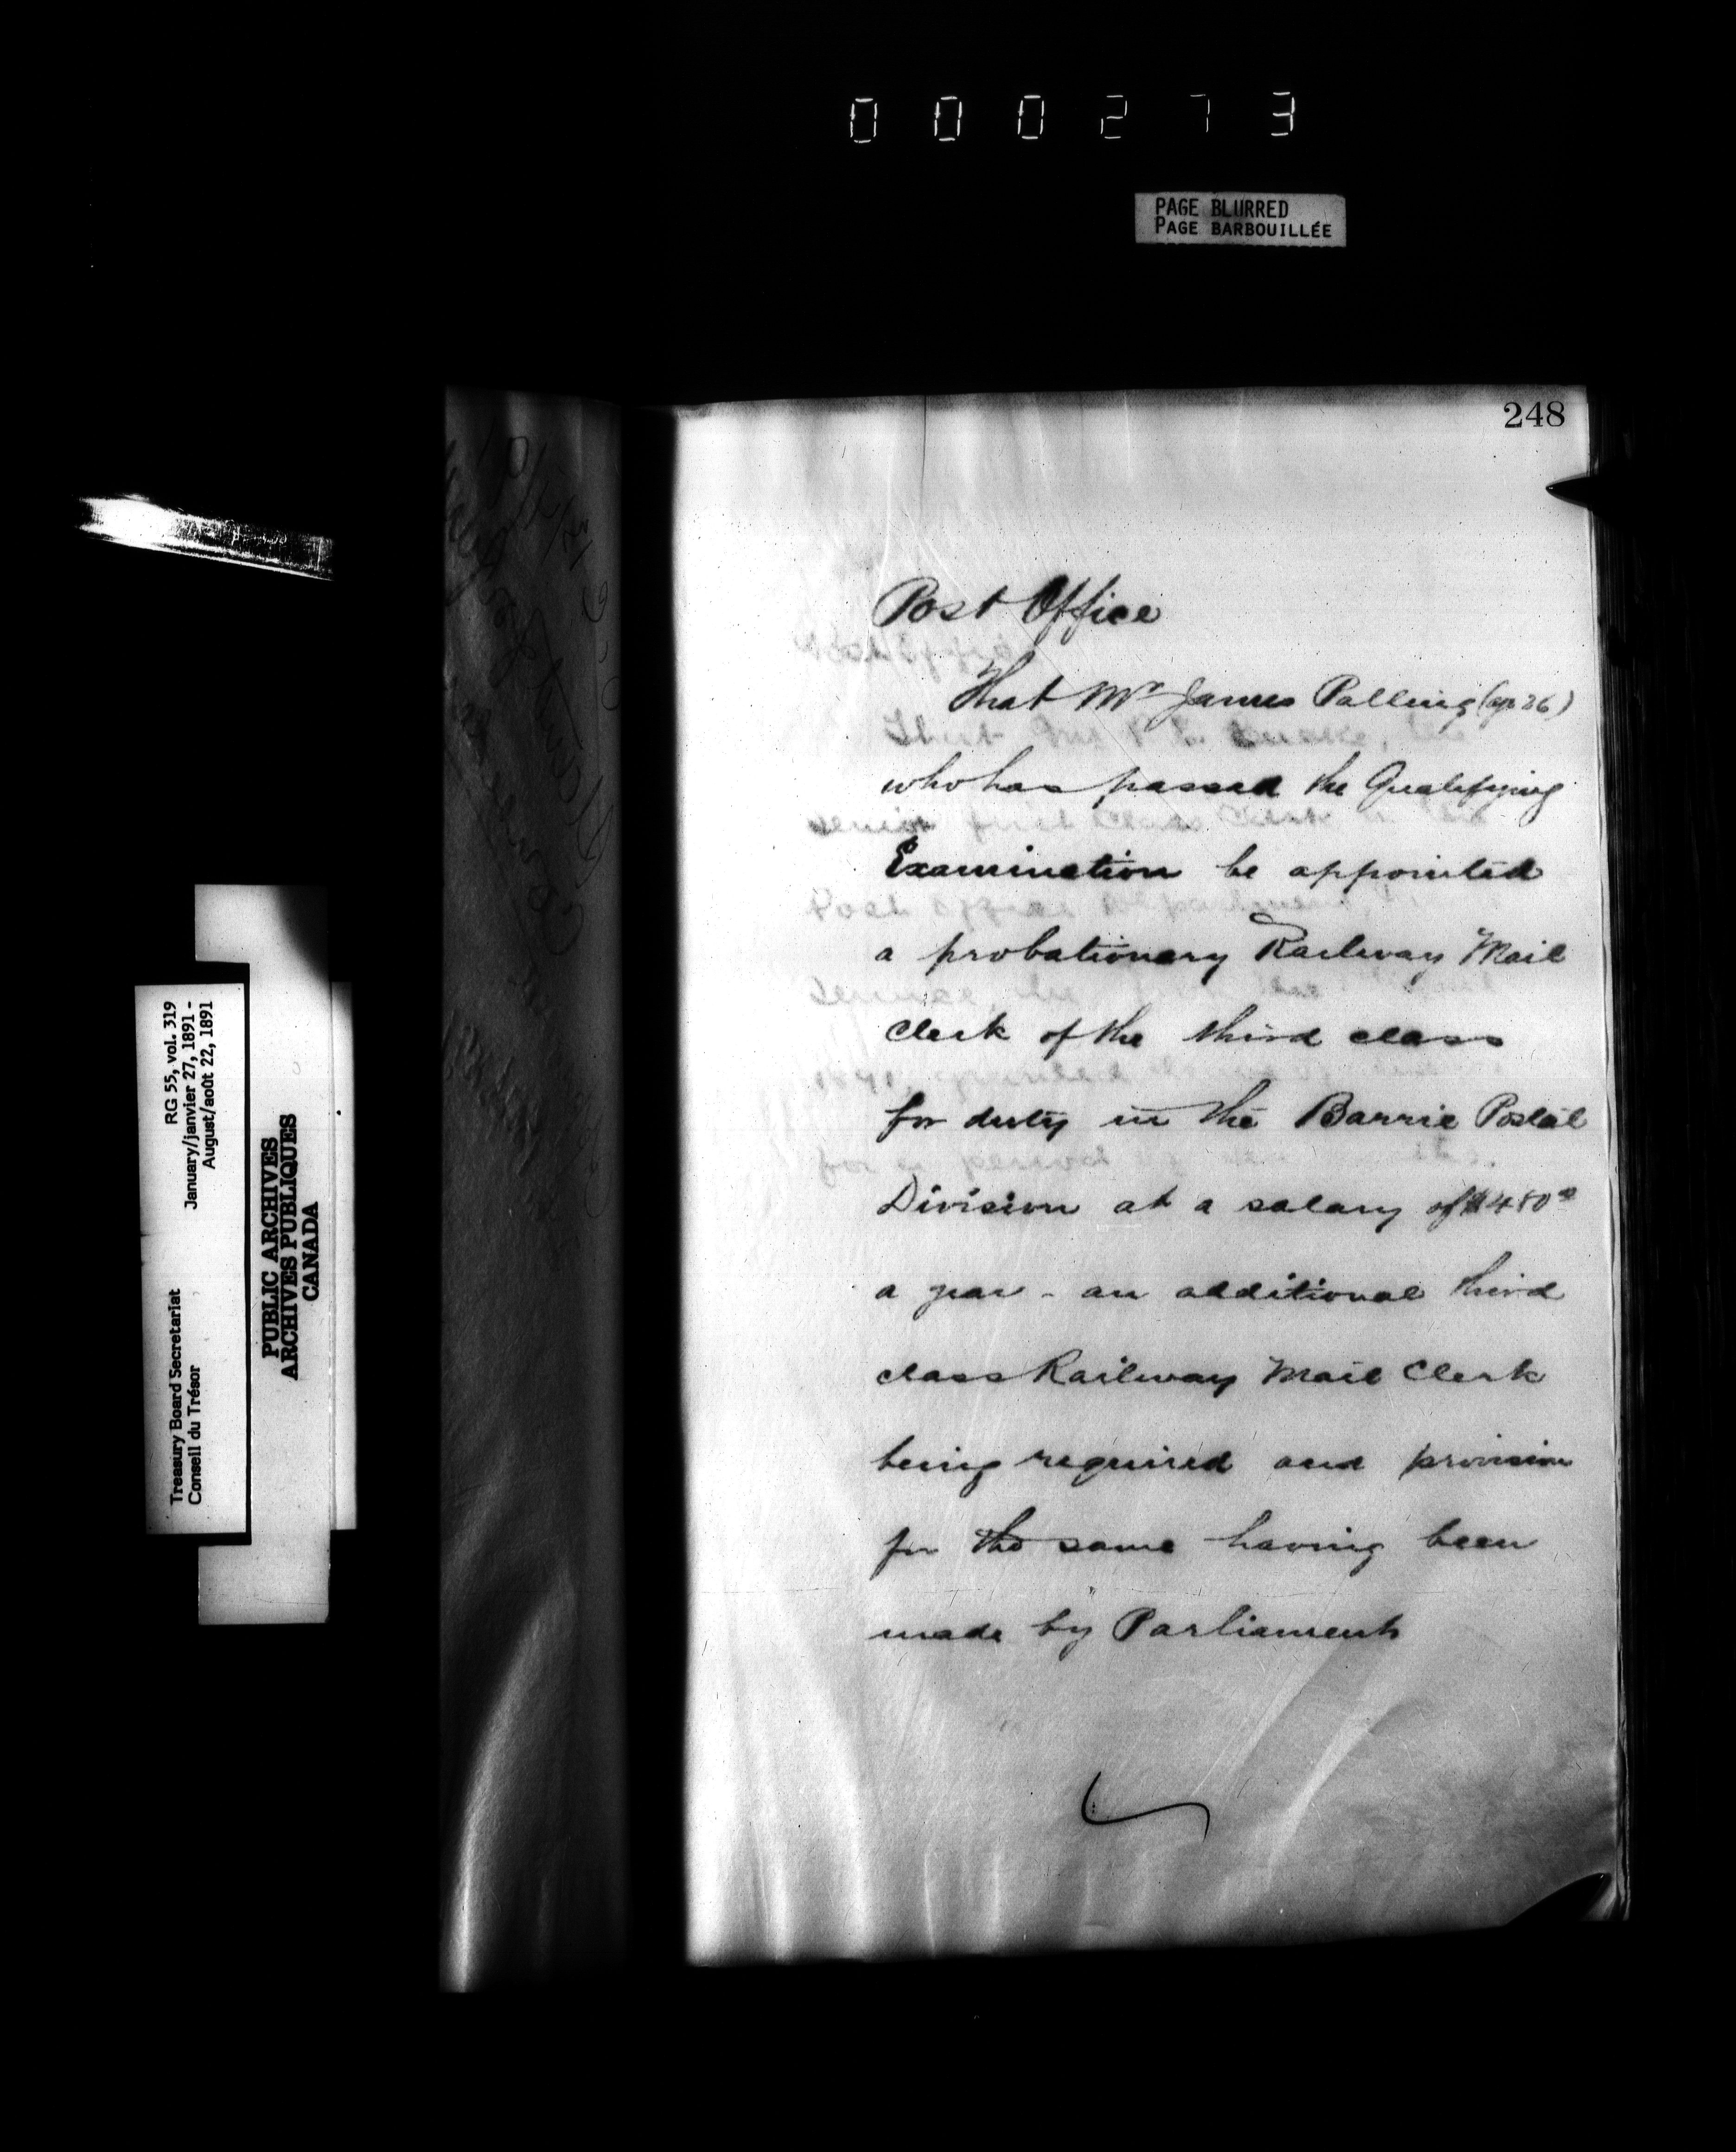 000273
PAGE BLURRED
PAGE BARBOUILLÉE
248
Post Office
That Mr James Palling (age 26)
who has passed the Qualifying
Examination be appointed
a probationary Railway Mail
Clerk of the third class
for duty in the Barrie Postal
Division at a salary of $480 00
a year - an additional third
class Railway Mail Clerk
being required and provision
for the same having been
made by Parliament
RG 55, vol. 319
January/janvier 27, 1891 -
August/août 22, 1891
Treasury Board Secretariat
Conseil du Trésor
PUBLIC ARCHIVES
ARCHIVES PUBLIQUES
CANADA